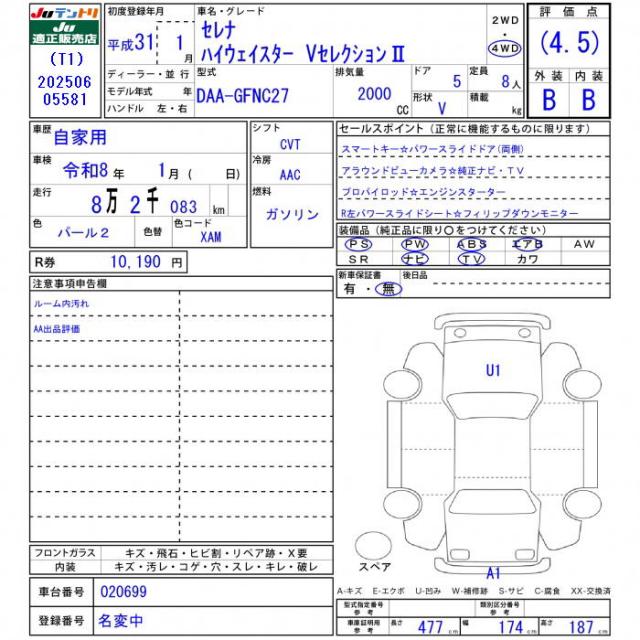 JUテントリ
JU
適正販売店
(T1)
202506
05581
初度登録年月
平成31年 1月
ディーラー・並行
モデル年式 年
ハンドル 左・右
車名・グレード
セレナ
ハイウェイスター VセレクションⅡ
2WD
・
4WD
型式
DAA-GFNC27
排気量
2000
CC
ドア
5
定員
8人
形状
V
積載
kg
評価点
(4.5)
外装 内装
B B
車歴
自家用
車検
令和8年 1月 ( 日)
走行
8万2千083km
色
パール2
色替
色コード
XAM
シフト
CVT
冷房
AAC
燃料
ガソリン
R券 10,190 円
セールスポイント(正常に機能するものに限ります)
スマートキー☆パワースライドドア(両側)
アラウンドビューカメラ☆純正ナビ・TV
プロパイロッド☆エンジンスターター
R左パワースライドシート☆フィリップダウンモニター
装備品(純正品に限り○をつけてください)
PS PW ABS エアB AW
SR ナビ TV カワ
新車保証書
有・無
後日品
注意事項申告欄
ルーム内汚れ
AA出品評価
U1
スペア
A1
フロントガラス キズ・飛石・ヒビ割・リペア跡・X要
内装 キズ・汚レ・コゲ・穴・スレ・キレ・破レ
A-キズ E-エクボ U-凹み W-補修跡 S-サビ C-腐食 XX-交換済
車台番号 020699
登録番号 名変中
型式指定番号
参考
類別区分番号
参考
車庫証明用
参考
長さ 477 cm 幅 174 cm 高さ 187 cm